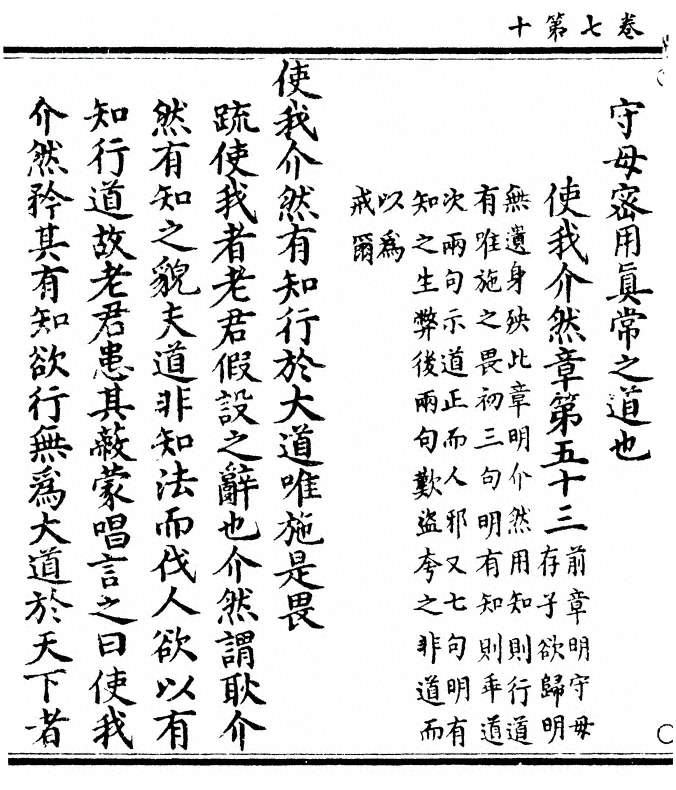 卷七第十
守母密用眞常之道也
使我介然章第五十三
前章明守母
存子欲歸明
無遺身殃此章明介然用知則行道
有唯施之畏初三句明有知則乖道
次兩句示道正而人邪又七句明有
知之生弊後兩句歎盜夸之非道而
以爲
戒爾
使我介然有知行於大道唯施是畏
疏使我者老君假設之辭也介然謂耿介
然有知之貌夫道非知法而伐人欲以有
知行道故老君患其蔽蒙唱言之曰使我
介然矜其有知欲行無爲大道於天下者